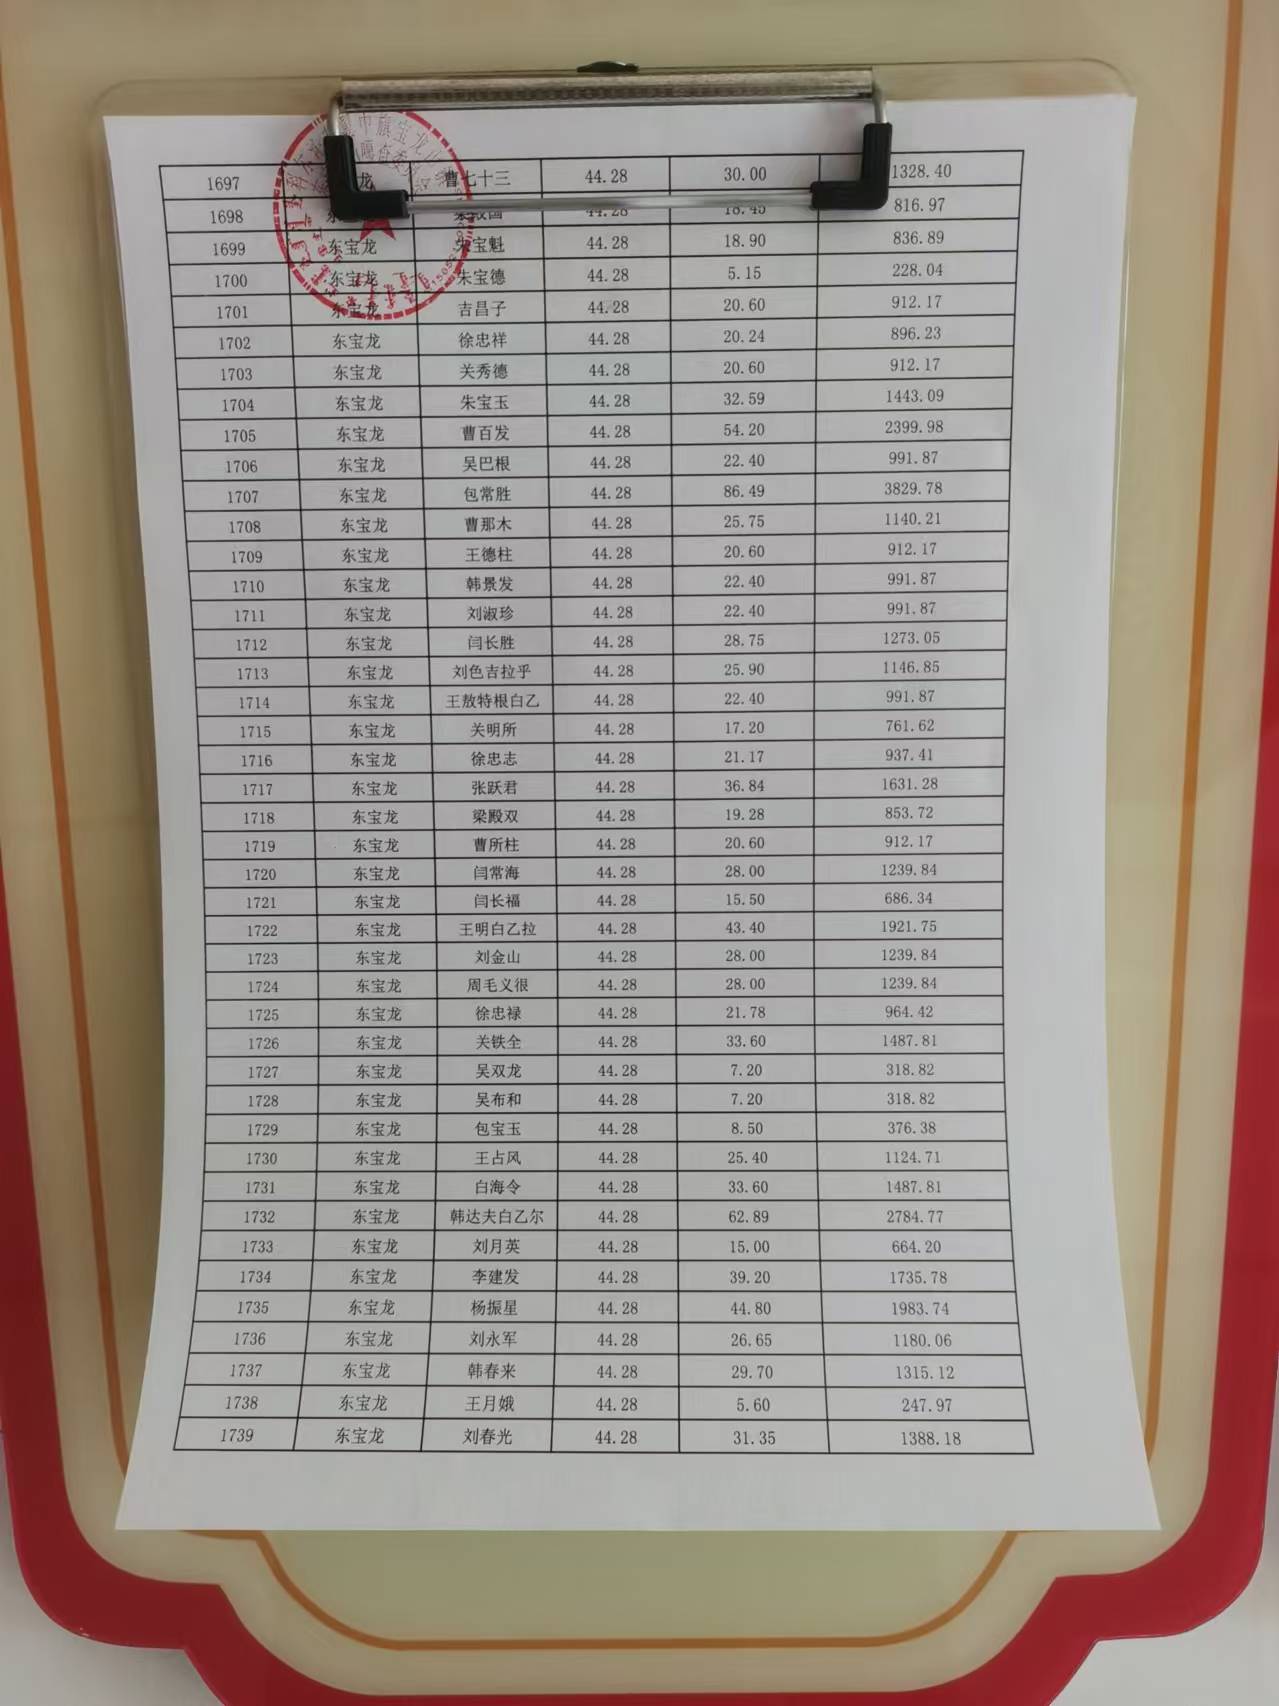 1697 龙 曹七十三 44.28 30.00 1328.40
1698 44.28 18.45 816.97
1699 东宝龙 朱宝魁 44.28 18.90 836.89
1700 东宝龙 朱宝德 44.28 5.15 228.04
1701 东宝龙 吉昌子 44.28 20.60 912.17
1702 东宝龙 徐忠祥 44.28 20.24 896.23
1703 东宝龙 关秀德 44.28 20.60 912.17
1704 东宝龙 朱宝玉 44.28 32.59 1443.09
1705 东宝龙 曹百发 44.28 54.20 2399.98
1706 东宝龙 吴巴根 44.28 22.40 991.87
1707 东宝龙 包常胜 44.28 86.49 3829.78
1708 东宝龙 曹那木 44.28 25.75 1140.21
1709 东宝龙 王德柱 44.28 20.60 912.17
1710 东宝龙 韩景发 44.28 22.40 991.87
1711 东宝龙 刘淑珍 44.28 22.40 991.87
1712 东宝龙 闫长胜 44.28 28.75 1273.05
1713 东宝龙 刘色吉拉乎 44.28 25.90 1146.85
1714 东宝龙 王敖特根白乙 44.28 22.40 991.87
1715 东宝龙 关明所 44.28 17.20 761.62
1716 东宝龙 徐忠志 44.28 21.17 937.41
1717 东宝龙 张跃君 44.28 36.84 1631.28
1718 东宝龙 梁殿双 44.28 19.28 853.72
1719 东宝龙 曹所柱 44.28 20.60 912.17
1720 东宝龙 闫常海 44.28 28.00 1239.84
1721 东宝龙 闫长福 44.28 15.50 686.34
1722 东宝龙 王明白乙拉 44.28 43.40 1921.75
1723 东宝龙 刘金山 44.28 28.00 1239.84
1724 东宝龙 周毛义很 44.28 28.00 1239.84
1725 东宝龙 徐忠禄 44.28 21.78 964.42
1726 东宝龙 关铁全 44.28 33.60 1487.81
1727 东宝龙 吴双龙 44.28 7.20 318.82
1728 东宝龙 吴布和 44.28 7.20 318.82
1729 东宝龙 包宝玉 44.28 8.50 376.38
1730 东宝龙 王占风 44.28 25.40 1124.71
1731 东宝龙 白海令 44.28 33.60 1487.81
1732 东宝龙 韩达夫白乙尔 44.28 62.89 2784.77
1733 东宝龙 刘月英 44.28 15.00 664.20
1734 东宝龙 李建发 44.28 39.20 1735.78
1735 东宝龙 杨振星 44.28 44.80 1983.74
1736 东宝龙 刘永军 44.28 26.65 1180.06
1737 东宝龙 韩春来 44.28 29.70 1315.12
1738 东宝龙 王月娥 44.28 5.60 247.97
1739 东宝龙 刘春光 44.28 31.35 1388.18